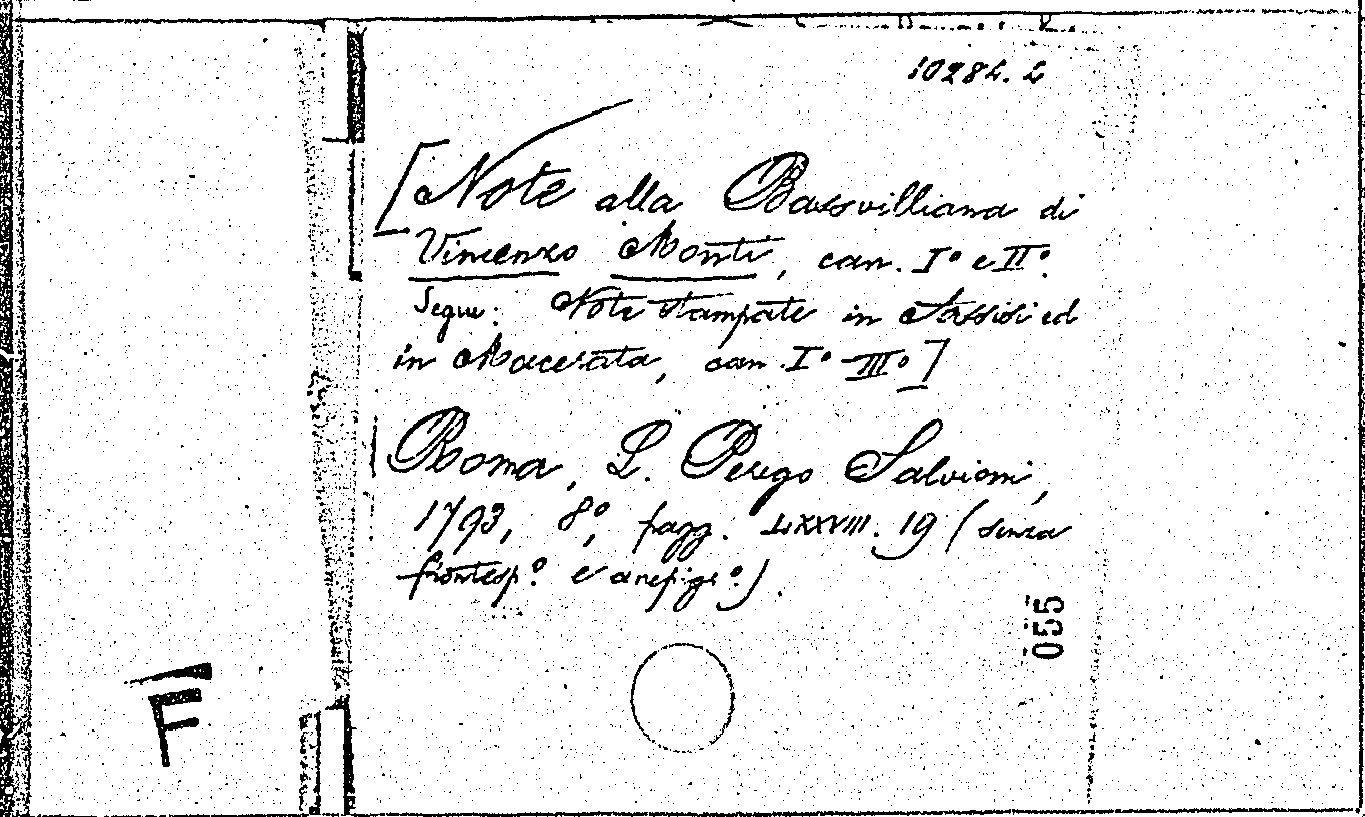 10284. L
[Note alla Bassvilliana di
Vincenzo Monti, can. Iº e IIº.
Segue: Note stampate in Assisi ed
in Macerata, can. Iº-IIIº]
Roma, L. Perego Salvioni,
1793, 8º, pagg. LXXVIII. 19 (senza
frontesp.º e anepigr.º).
055
F